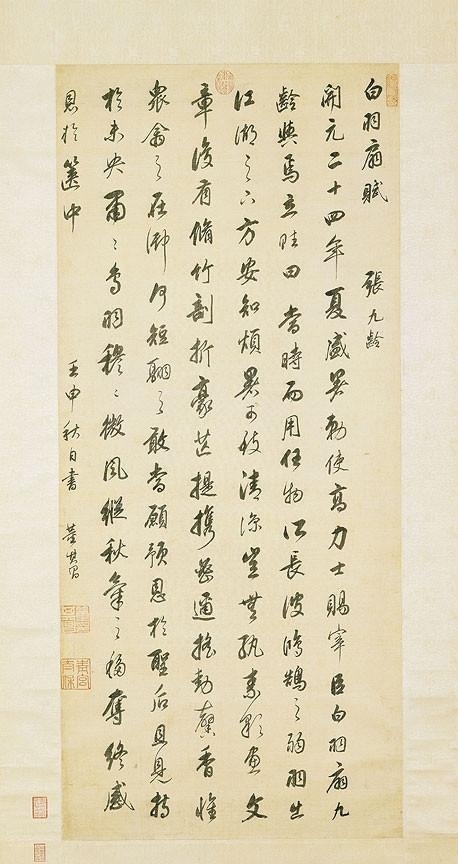 白羽扇賦 張九齡
開元二十四年夏盛暑勅使高力士賜宰臣白羽扇九
齡與焉立賦曰當時而用任物所長彼鴻鵠之弱羽出
江湖之下方安知煩暑可致清涼豈無紈素彩畫文
章復有脩竹剖析豪芒提攜密邇搖動馨香惟
衆禽之在御何短翮之敢當顧預恩於聖后且見持
於未央肅〻鳥羽穆〻微風縱秋氣之移奪終感
恩於篋中 壬申秋日書 董其昌